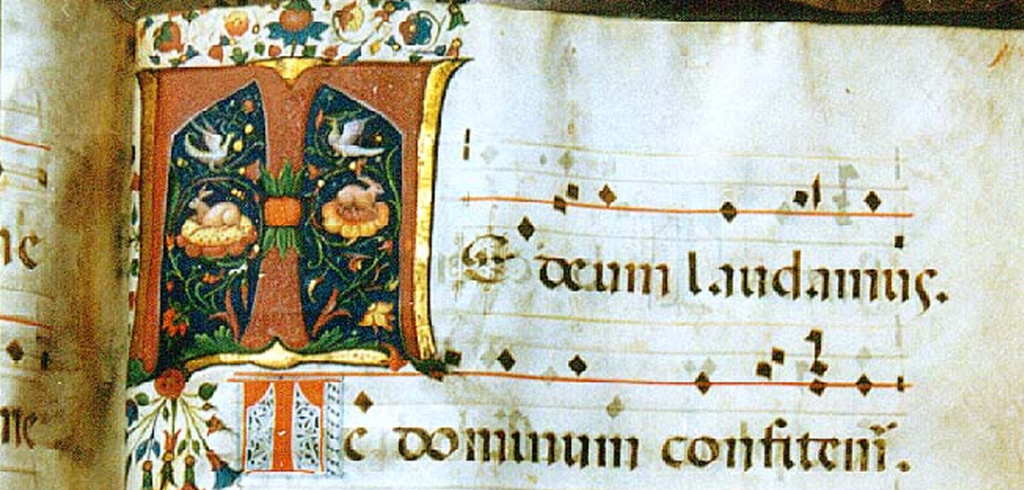 TE deum laudamus.
Te dominum confitem̄.
ne
ne